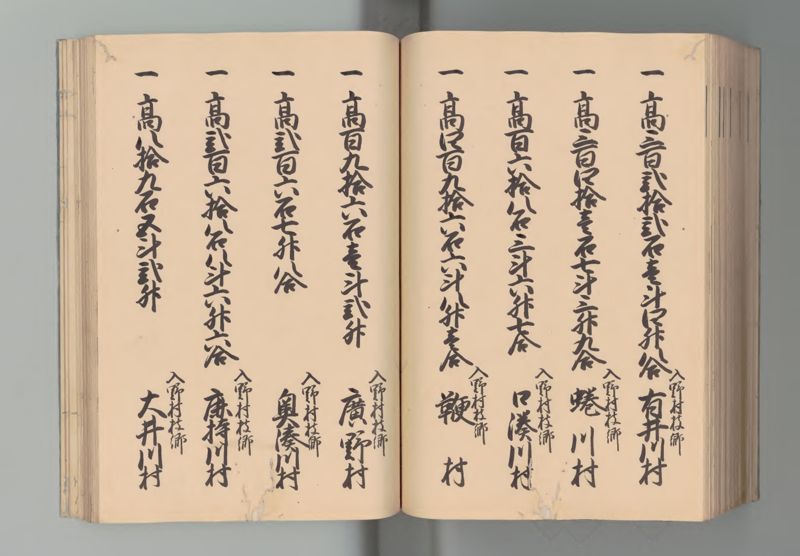 一 高三百弐拾弐石壱斗四升八合
入野村枝郷
有井川村
一 高三百四拾壱石七斗三升九合
入野村枝郷
蜷川村
一 高百六拾八石三斗六升七合
入野村枝郷
口湊川村
一 高四百九拾六石六斗八升壱合
入野村枝郷
鞭村
一 高百九拾六石壱斗弐升
入野村枝郷
廣野村
一 高弐百六石七升八合
入野村枝郷
奥湊川村
一 高弐百六拾八石八斗六升六合
入野村枝郷
麻持川村
一 高八拾九石五斗弐升
入野村枝郷
大井川村